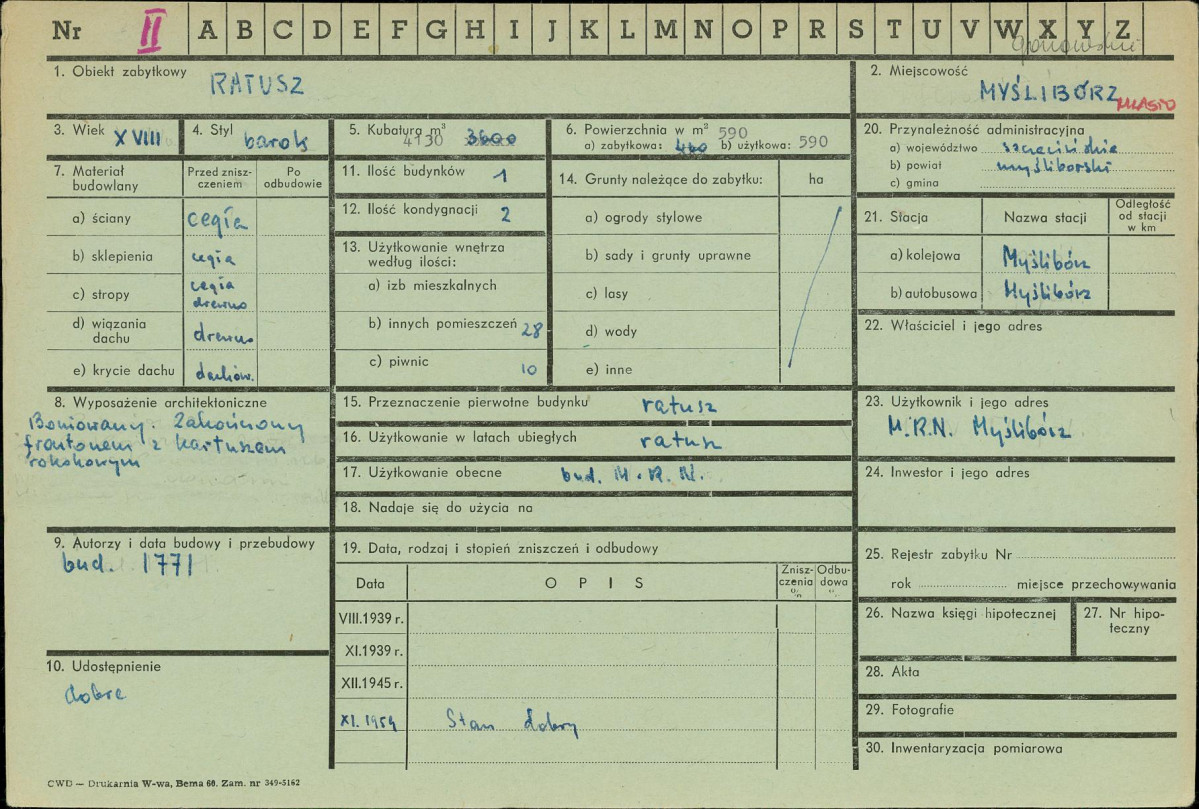 Nr II A B C D E F G H I J K L M N O P R S T U V W X Y Z
1. Obiekt zabytkowy
RATUSZ
2. Miejscowość
MYŚLIBÓRZ MIASTO
3. Wiek XVIII
4. Styl barok
5. Kubatura m³
4130 3600
6. Powierzchnia w m² 590
a) zabytkowa: b) użytkowa: 590
20. Przynależność administracyjna
a) województwo szczecińskie
b) powiat myśliborski
c) gmina
7. Materiał budowlany
Przed znisz-
czeniem
Po
odbudowie
a) ściany cegła
b) sklepienia cegła
c) stropy cegła
drewno
d) wiązania
dachu drewno
e) krycie dachu dachów.
11. Ilość budynków 1
12. Ilość kondygnacji 2
13. Użytkowanie wnętrza
według ilości:
a) izb mieszkalnych
b) innych pomieszczeń 28
c) piwnic 10
14. Grunty należące do zabytku: ha
a) ogrody stylowe
b) sady i grunty uprawne
c) lasy
d) wody
e) inne
21. Stacja Nazwa stacji
Odległość
od stacji
w km
a) kolejowa Myślibórz
b) autobusowa Myślibórz
22. Właściciel i jego adres
8. Wyposażenie architektoniczne
Boniowany. Zakończony
frontonem z kartuszem
rokokowym
15. Przeznaczenie pierwotne budynku ratusz
16. Użytkowanie w latach ubiegłych ratusz
17. Użytkowanie obecne bud. M.R.N.
18. Nadaje się do użycia na
23. Użytkownik i jego adres
M.R.N. Myślibórz
24. Inwestor i jego adres
9. Autorzy i data budowy i przebudowy
bud. 1771
10. Udostępnienie
dobre
19. Data, rodzaj i stopień zniszczeń i odbudowy
Data OPIS
Znisz-
czenia
%
Odbu-
dowa
%
VIII.1939 r.
XI.1939 r.
XII.1945 r.
XI.1959 Stan dobry
25. Rejestr zabytku Nr
rok miejsce przechowywania
26. Nazwa księgi hipotecznej
27. Nr hipo-
teczny
28. Akta
29. Fotografie
30. Inwentaryzacja pomiarowa
CWD — Drukarnia W-wa, Bema 60. Zam. nr 349-5162